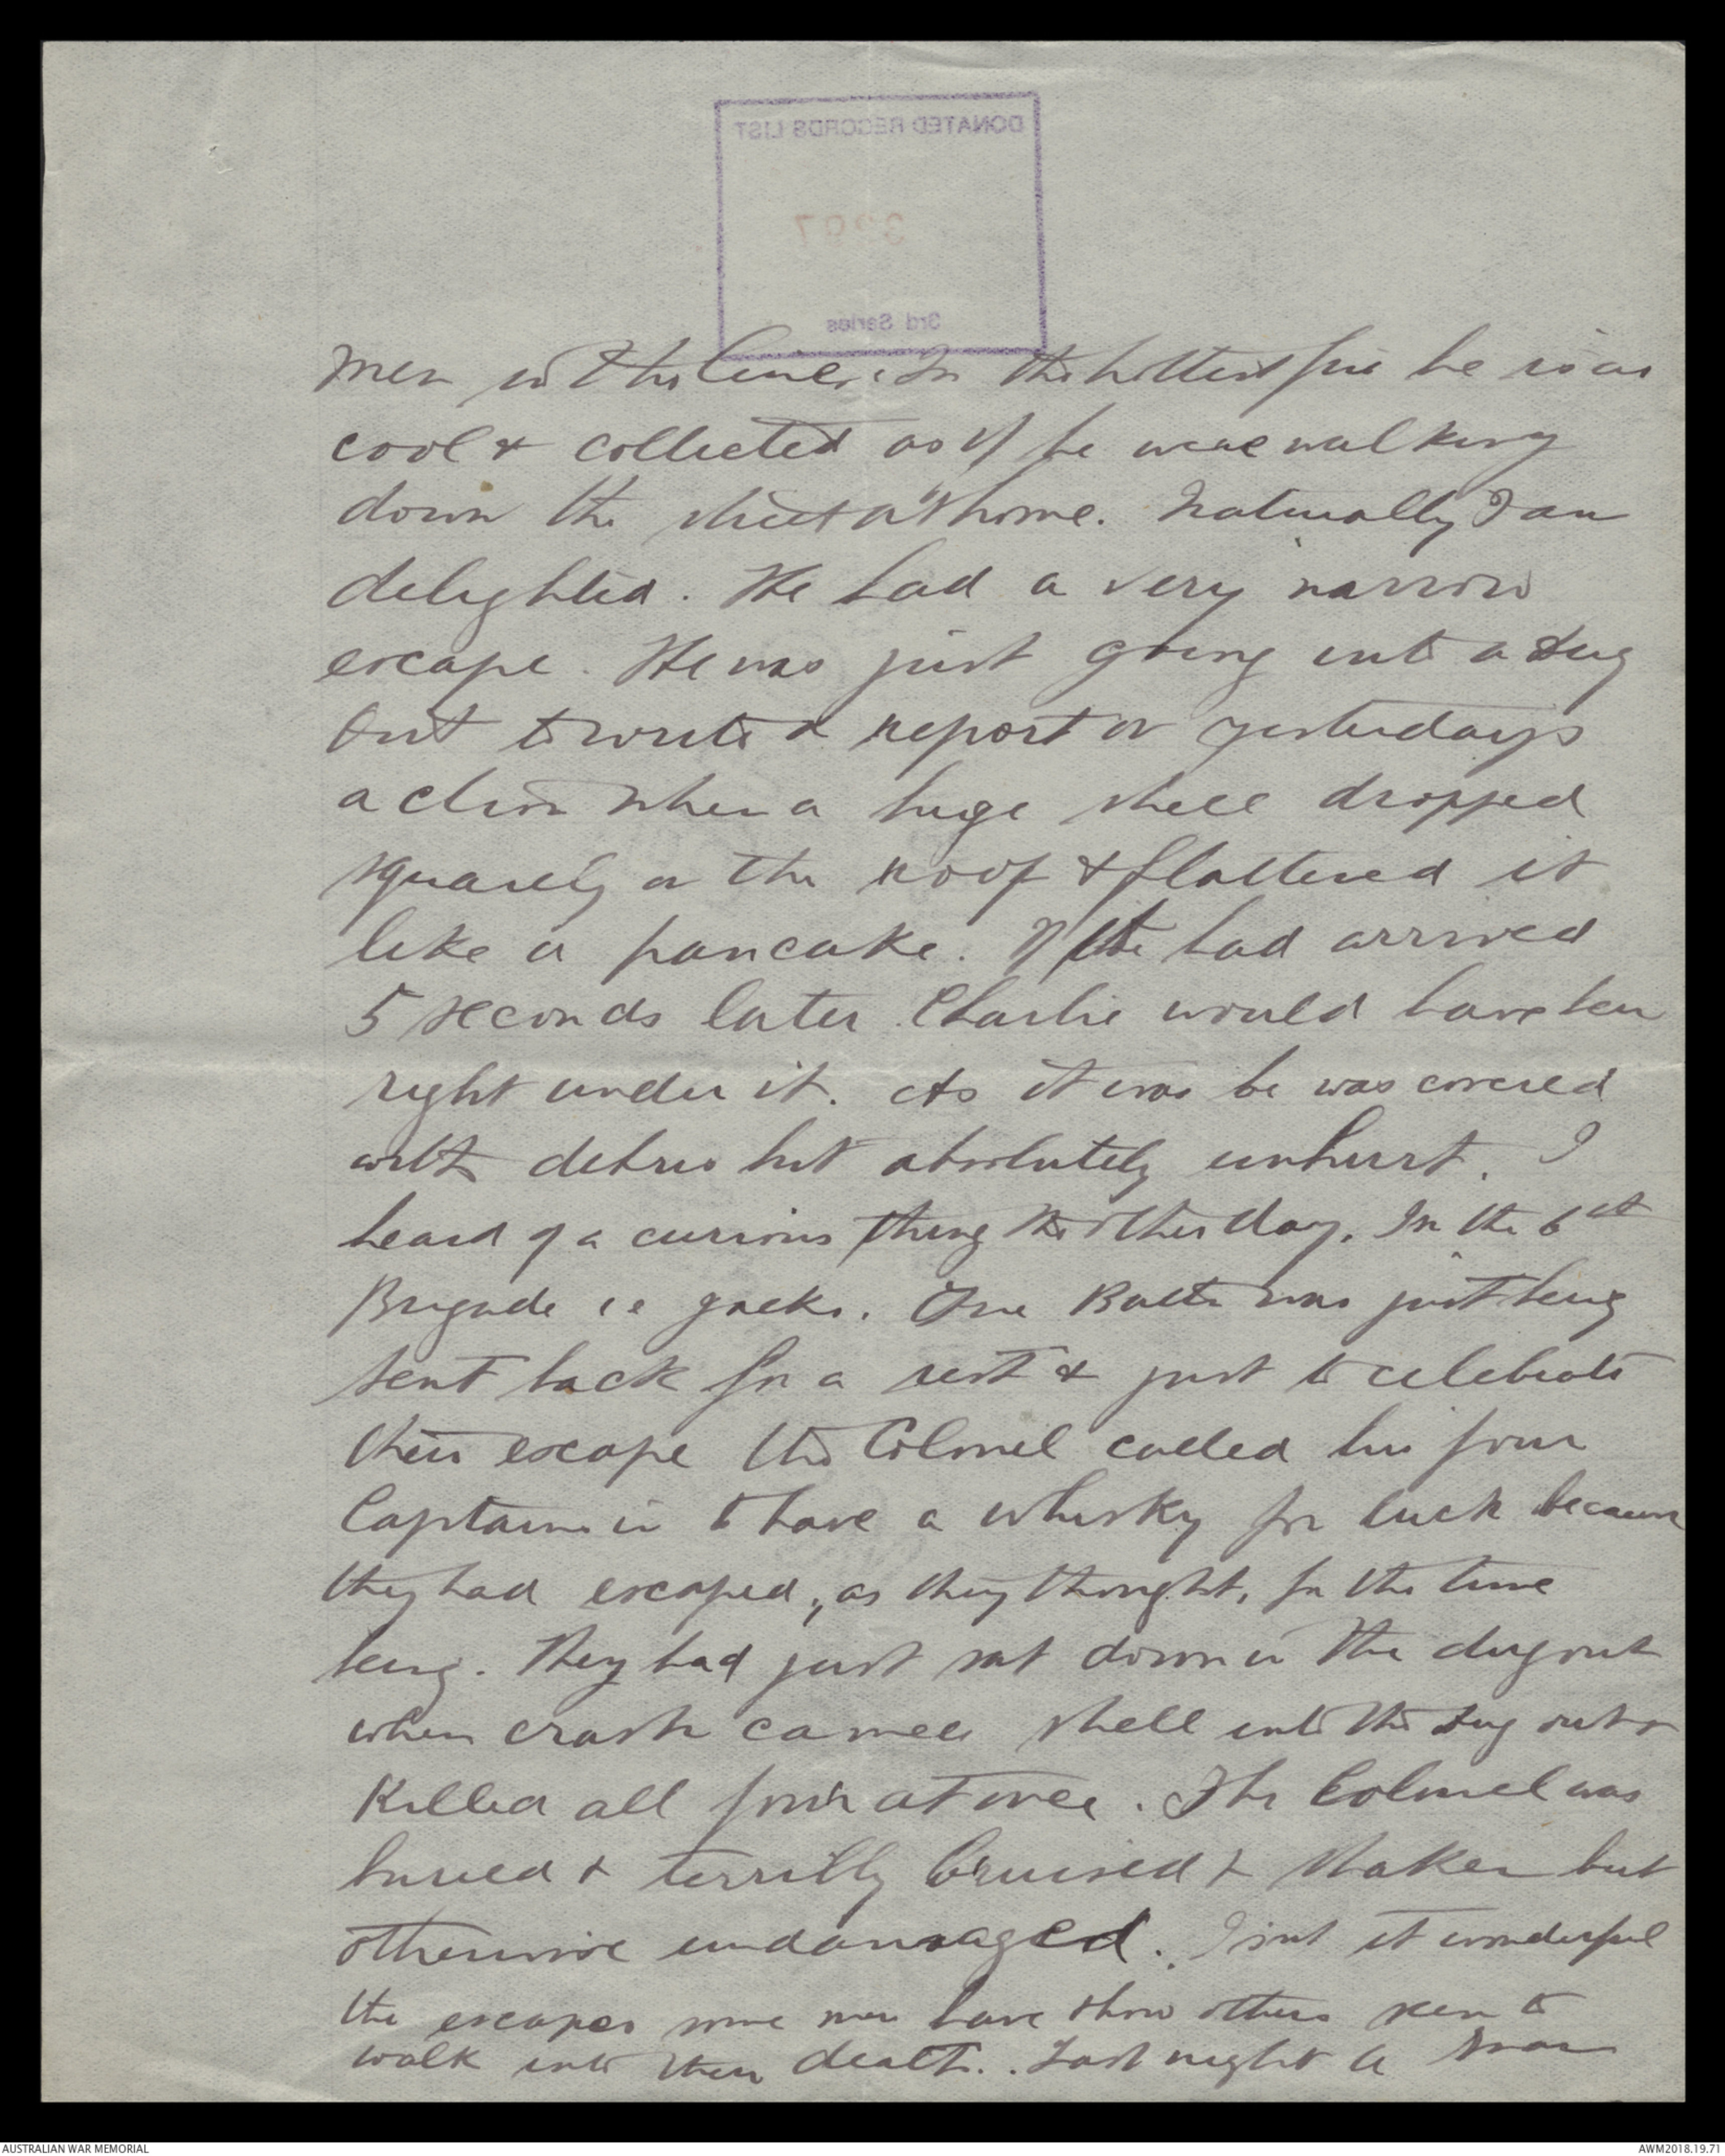 DONATED RECORDS LIST
3rd Series
men in the line. In the hottest fire he is as
cool & collected as if he were walking
down the street at home. Naturally I am
delighted. He had a very narrow
escape. He was just going into a dug
out to write a report on yesterdays
action when a huge shell dropped
squarely on the roof & flattened it
like a pancake. If it had arrived
5 seconds later Charlie would have been
right under it. As it was he was covered
with debris but absolutely unhurt. I
heard of a curious thing the other day. In the 6th
Brigade ie Jacks. One Battn was just being
sent back for a rest & just to celebrate
their escape the Colonel called his four
Captains in to have a whisky for luck because
they had escaped, as they thought, for the time
being. They had just sat down in the dugout
when crash came a shell into the dug out &
killed all four at once. The Colonel was
buried & terribly bruised & shaken but
otherwise undamaged. Isnt it wonderful
the escapes some men have & how others seem to
walk into their death. Last night a man
AUSTRALIAN WAR MEMORIAL
AWM2018.19.71